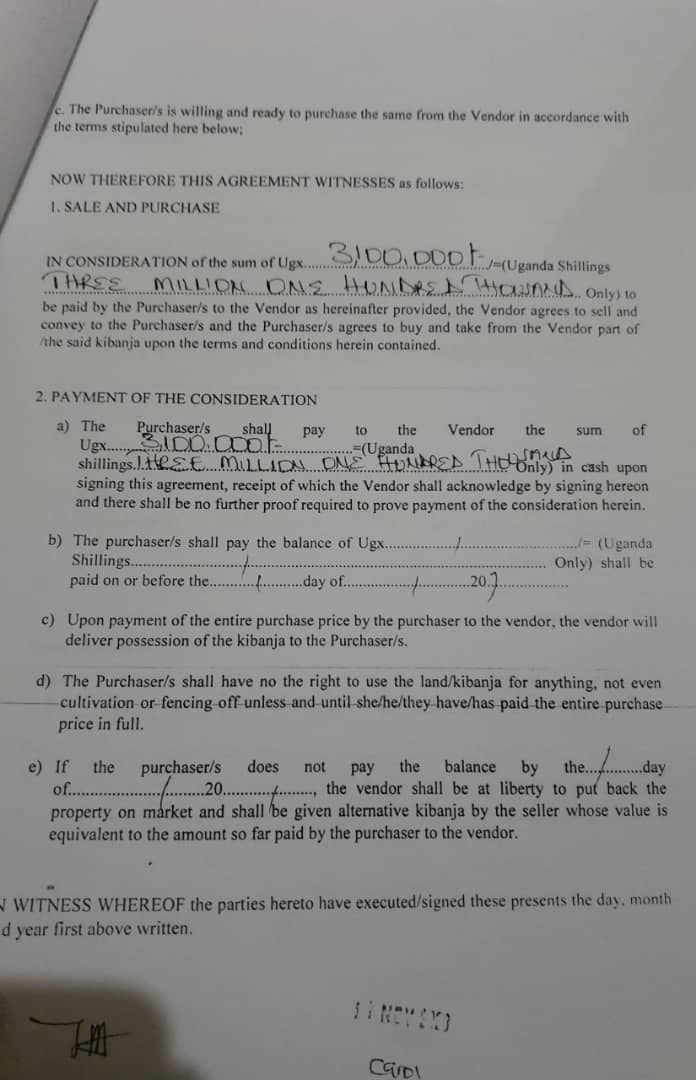 c. The Purchaser/s is willing and ready to purchase the same from the Vendor in accordance with
the terms stipulated here below;
NOW THEREFORE THIS AGREEMENT WITNESSES as follows:
1. SALE AND PURCHASE
IN CONSIDERATION of the sum of Ugx....3,100,000/=.../=(Uganda Shillings
THREE MILLION ONE HUNDRED THOUSAND.. Only) to
be paid by the Purchaser/s to the Vendor as hereinafter provided, the Vendor agrees to sell and
convey to the Purchaser/s and the Purchaser/s agrees to buy and take from the Vendor part of
/the said kibanja upon the terms and conditions herein contained.
2. PAYMENT OF THE CONSIDERATION
a) The Purchaser/s shall pay to the Vendor the sum of
Ugx......3,100,000/=..........=(Uganda
shillings.THREE MILLION ONE HUNDRED THOUSAND Only) in cash upon
signing this agreement, receipt of which the Vendor shall acknowledge by signing hereon
and there shall be no further proof required to prove payment of the consideration herein.
b) The purchaser/s shall pay the balance of Ugx................/........................./= (Uganda
Shillings......................../............................................................ Only) shall be
paid on or before the.........../.........day of................/............20.7...............
c) Upon payment of the entire purchase price by the purchaser to the vendor, the vendor will
deliver possession of the kibanja to the Purchaser/s.
d) The Purchaser/s shall have no the right to use the land/kibanja for anything, not even
cultivation or fencing off unless and until she/he/they have/has paid the entire purchase
price in full.
e) If the purchaser/s does not pay the balance by the.../.........day
of..................../........20............/........, the vendor shall be at liberty to put back the
property on market and shall be given alternative kibanja by the seller whose value is
equivalent to the amount so far paid by the purchaser to the vendor.
N WITNESS WHEREOF the parties hereto have executed/signed these presents the day, month
d year first above written.
Carol